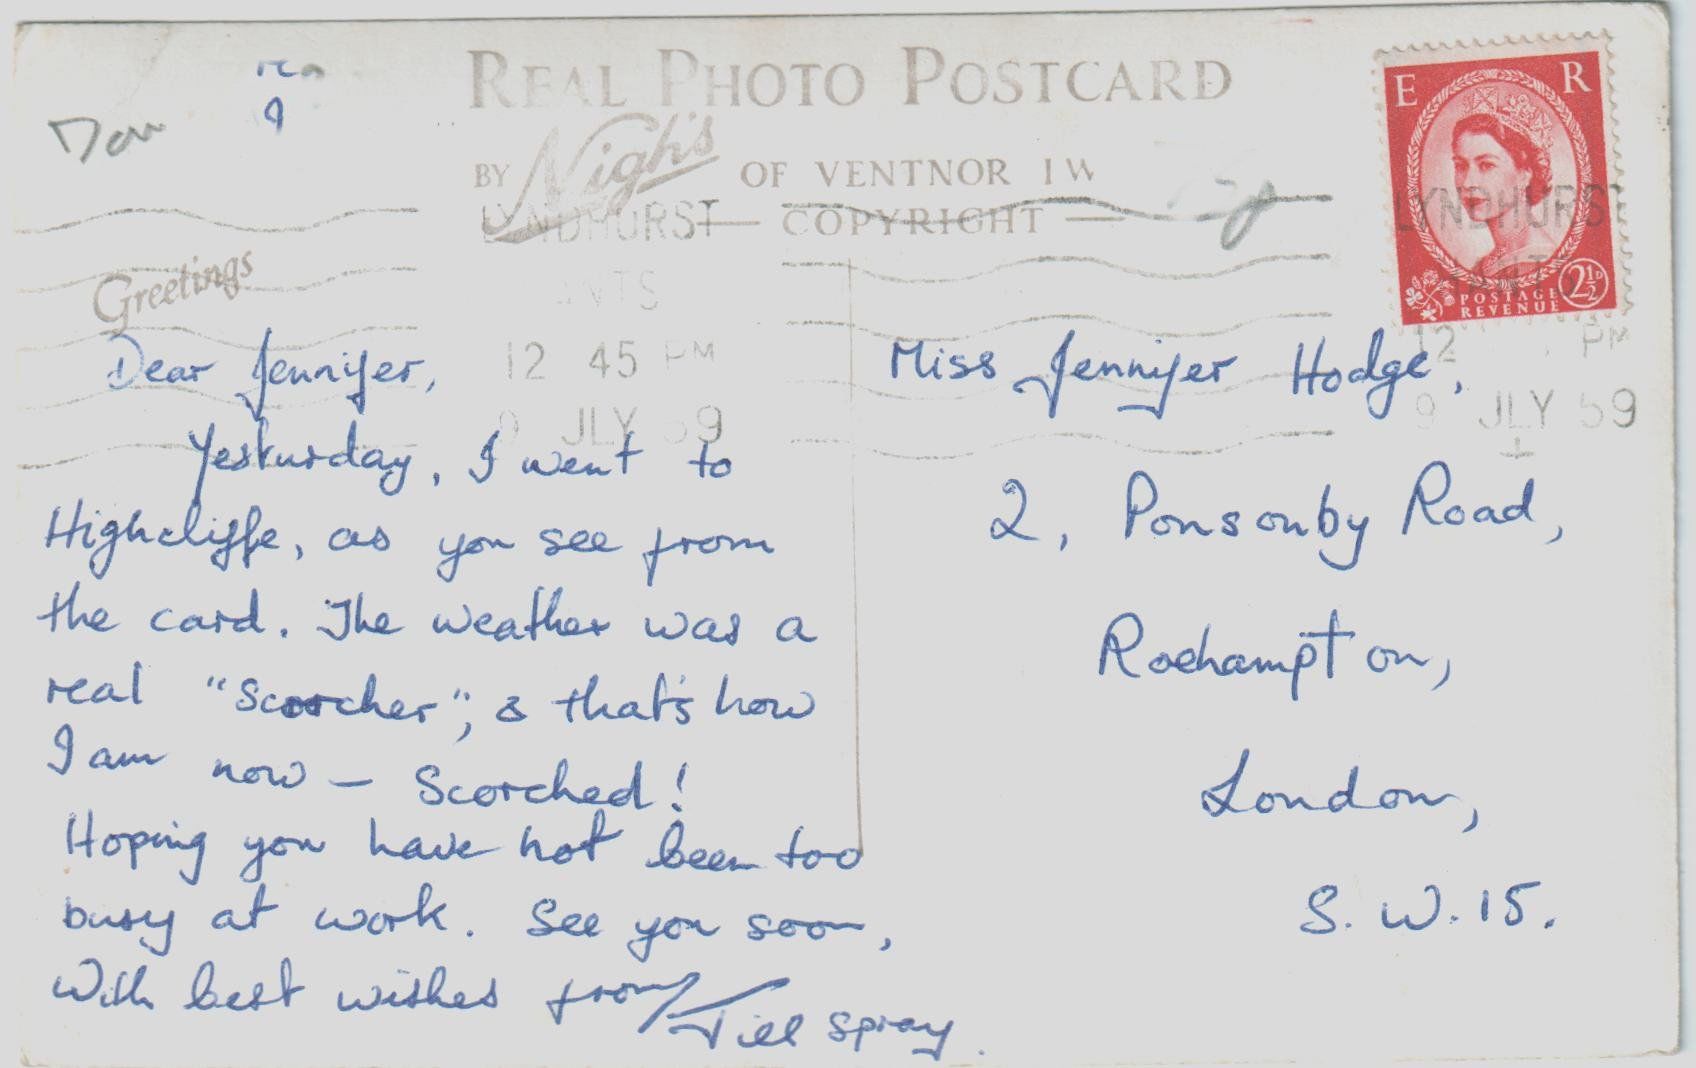 REAL PHOTO POSTCARD
BY Nigh's OF VENTNOR I W
COPYRIGHT
Greetings
LYNDHURST
12 45 PM
JLY 59
E R
POSTAGE
REVENUE
2½D
LYNDHURST
HANTS
12 PM
9 JLY 59
Dear Jennifer,
Yesturday, I went to
Highcliffe, as you see from
the card. The weather was a
real "Scorcher", & that's how
I am now – Scorched!
Hoping you have not been too
busy at work. See you soon,
With best wishes from
Jill Spray.
Miss Jennifer Hodge,
2, Ponsonby Road,
Roehampton,
London,
S.W.15.